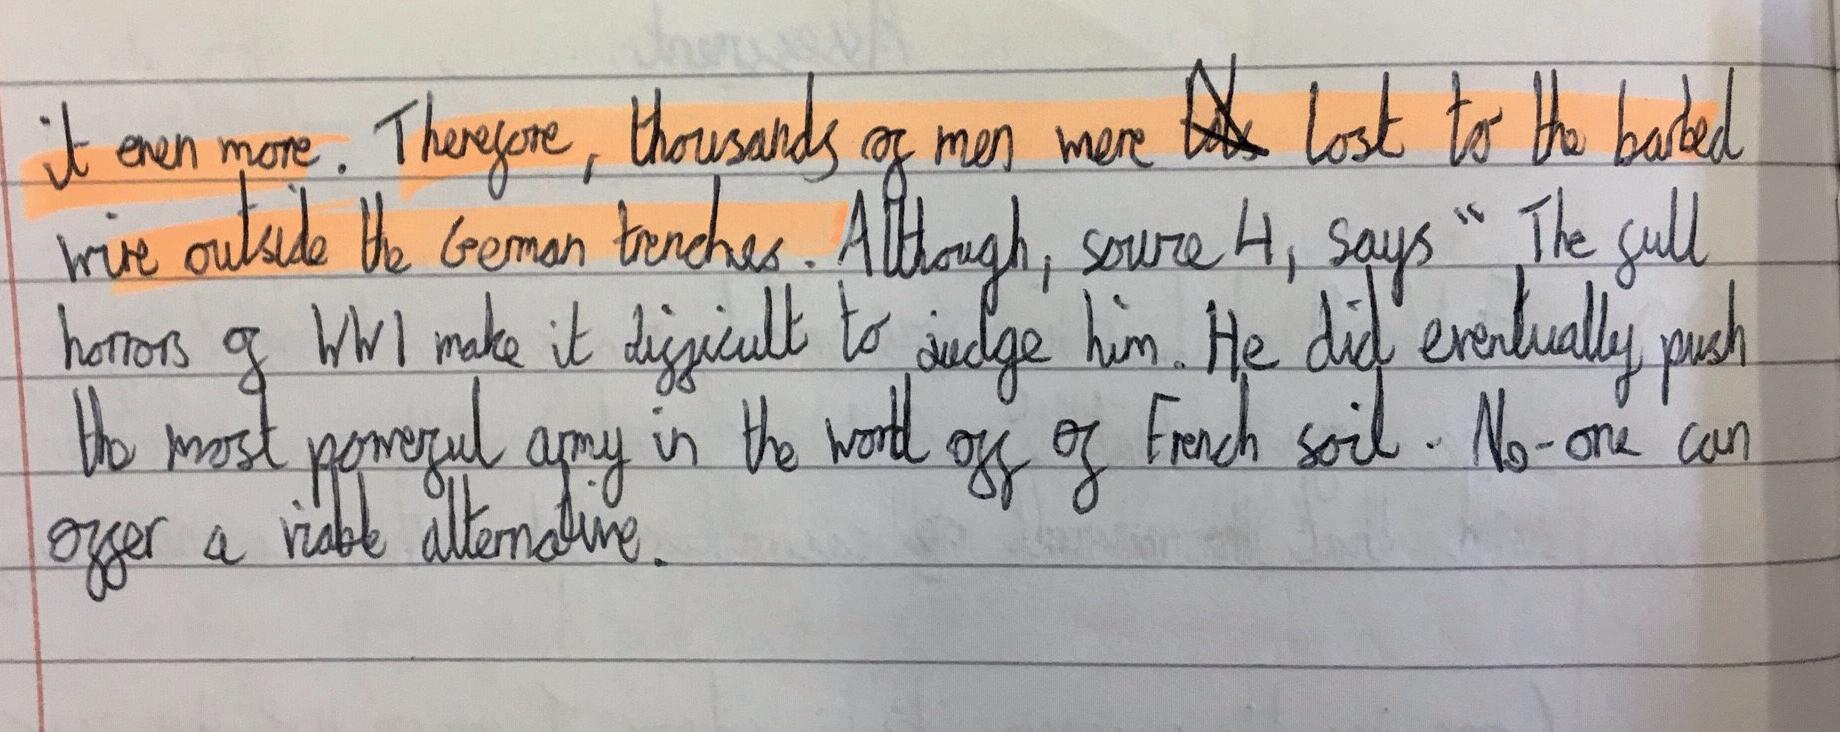 it even more. Therefore, thousands of men were lost to the barbed
wire outside the German trenches. Although, source H, says " The full
horrors of WW1 make it difficult to judge him. He did eventually push
the most powerful army in the world off of French soil. No-one can
offer a viable alternative.